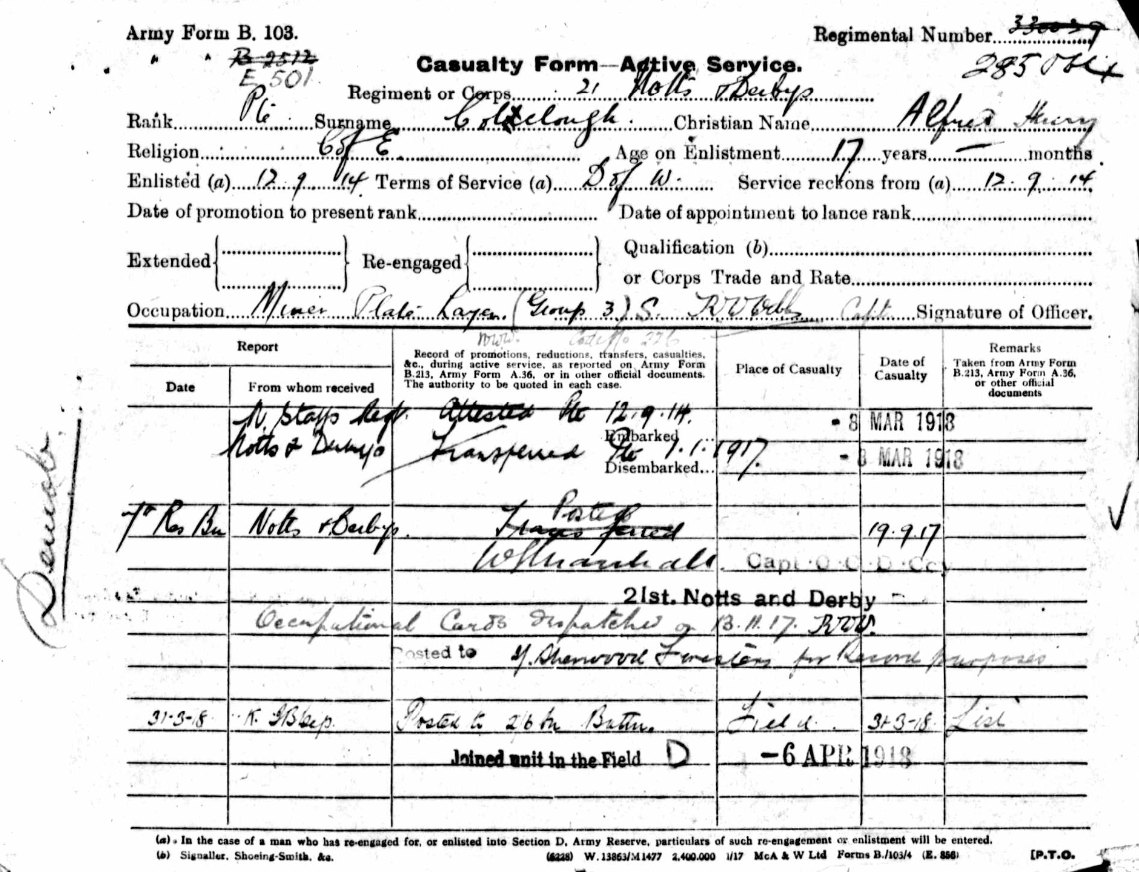 Army Form B. 103. Regimental Number 330039
" " B 2512
E 501 285
Casualty Form—Active Service.
Regiment or Corps 21 Notts & Derbys
Rank Pte Surname Colclough. Christian Name Alfred Henry
Religion C of E. Age on Enlistment 17 years — months
Enlisted (a) 12. 9. 14 Terms of Service (a) D of W. Service reckons from (a) 12. 9. 14.
Date of promotion to present rank Date of appointment to lance rank
Extended Re-engaged Qualification (b)
or Corps Trade and Rate
Occupation Miner Plate Layer. (Group 3) Capt Signature of Officer.
Report Record of promotions, reductions, transfers, casualties, &c., during active service, as reported on Army Form B.213, Army Form A.36, or in other official documents. The authority to be quoted in each case. Place of Casualty Date of Casualty Remarks Taken from Army Form B.213, Army Form A.36, or other official documents
Date From whom received
N. Staffs Regt. Attested Pte 12.9.14. Embarked - 8 MAR 1918
Notts & Derbys Transferred Pte 1.1.1917. Disembarked... - 8 MAR 1918
Demob.
7th Res Bn Notts & Derbys. Posted
Transferred 19.9.17
Capt O.C. D Coy
21st. Notts and Derby
Occupational Cards dispatched on 13.11.17.
Posted to Sherwood Foresters for Record purposes
31-3-18 Posted to 2/6 Battn. Field. 31-3-18 List
Joined unit in the Field D -6 APR 1918
(a). In the case of a man who has re-engaged for, or enlisted into Section D, Army Reserve, particulars of such re-engagement or enlistment will be entered.
(b) Signaller, Shoeing-Smith, &c. (6228) W.13863/M1477 2,400,000 1/17 McA & W Ltd Forms B./103/4 (E. 856) [P.T.O.